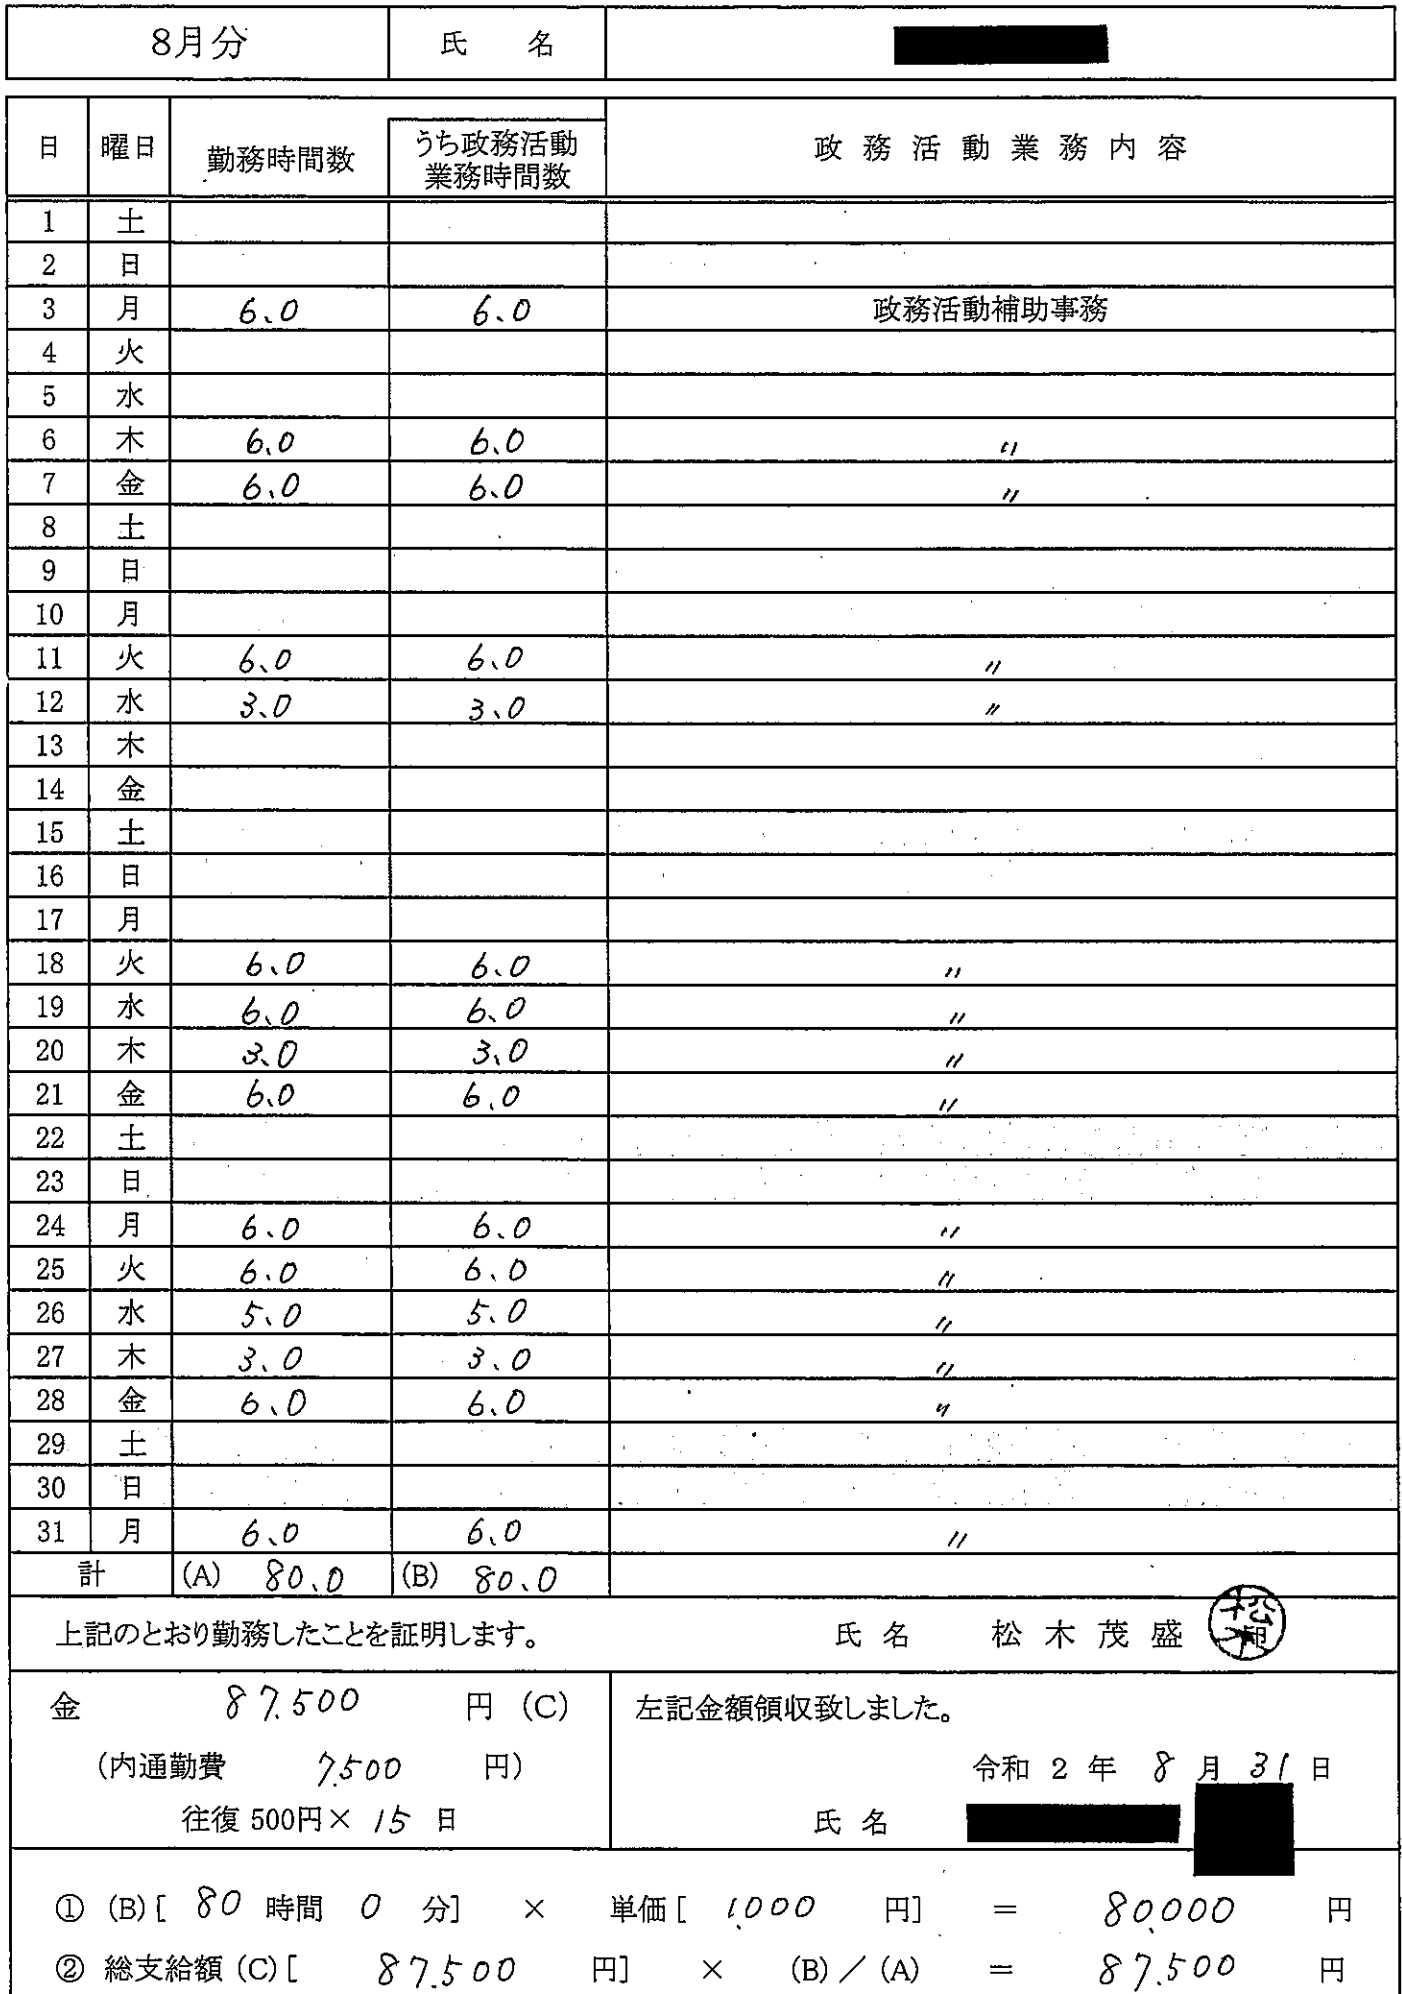 8月分 氏 名
日 曜日 勤務時間数 うち政務活動業務時間数 政務活動業務内容
1 土
2 日
3 月 6.0 6.0 政務活動補助事務
4 火
5 水
6 木 6.0 6.0 〃
7 金 6.0 6.0 〃
8 土
9 日
10 月
11 火 6.0 6.0 〃
12 水 3.0 3.0 〃
13 木
14 金
15 土
16 日
17 月
18 火 6.0 6.0 〃
19 水 6.0 6.0 〃
20 木 3.0 3.0 〃
21 金 6.0 6.0 〃
22 土
23 日
24 月 6.0 6.0 〃
25 火 6.0 6.0 〃
26 水 5.0 5.0 〃
27 木 3.0 3.0 〃
28 金 6.0 6.0 〃
29 土
30 日
31 月 6.0 6.0 〃
計 (A) 80.0 (B) 80.0
上記のとおり勤務したことを証明します。 氏 名 松 木 茂 盛
金 87,500 円 (C) 左記金額領収致しました。
(内通勤費 7,500 円) 令和 2 年 8 月 31 日
往復 500円× 15 日 氏 名
① (B) [ 80 時間 0 分] × 単価 [ 1,000 円] = 80,000 円
② 総支給額 (C) [ 87,500 円] × (B) / (A) = 87,500 円